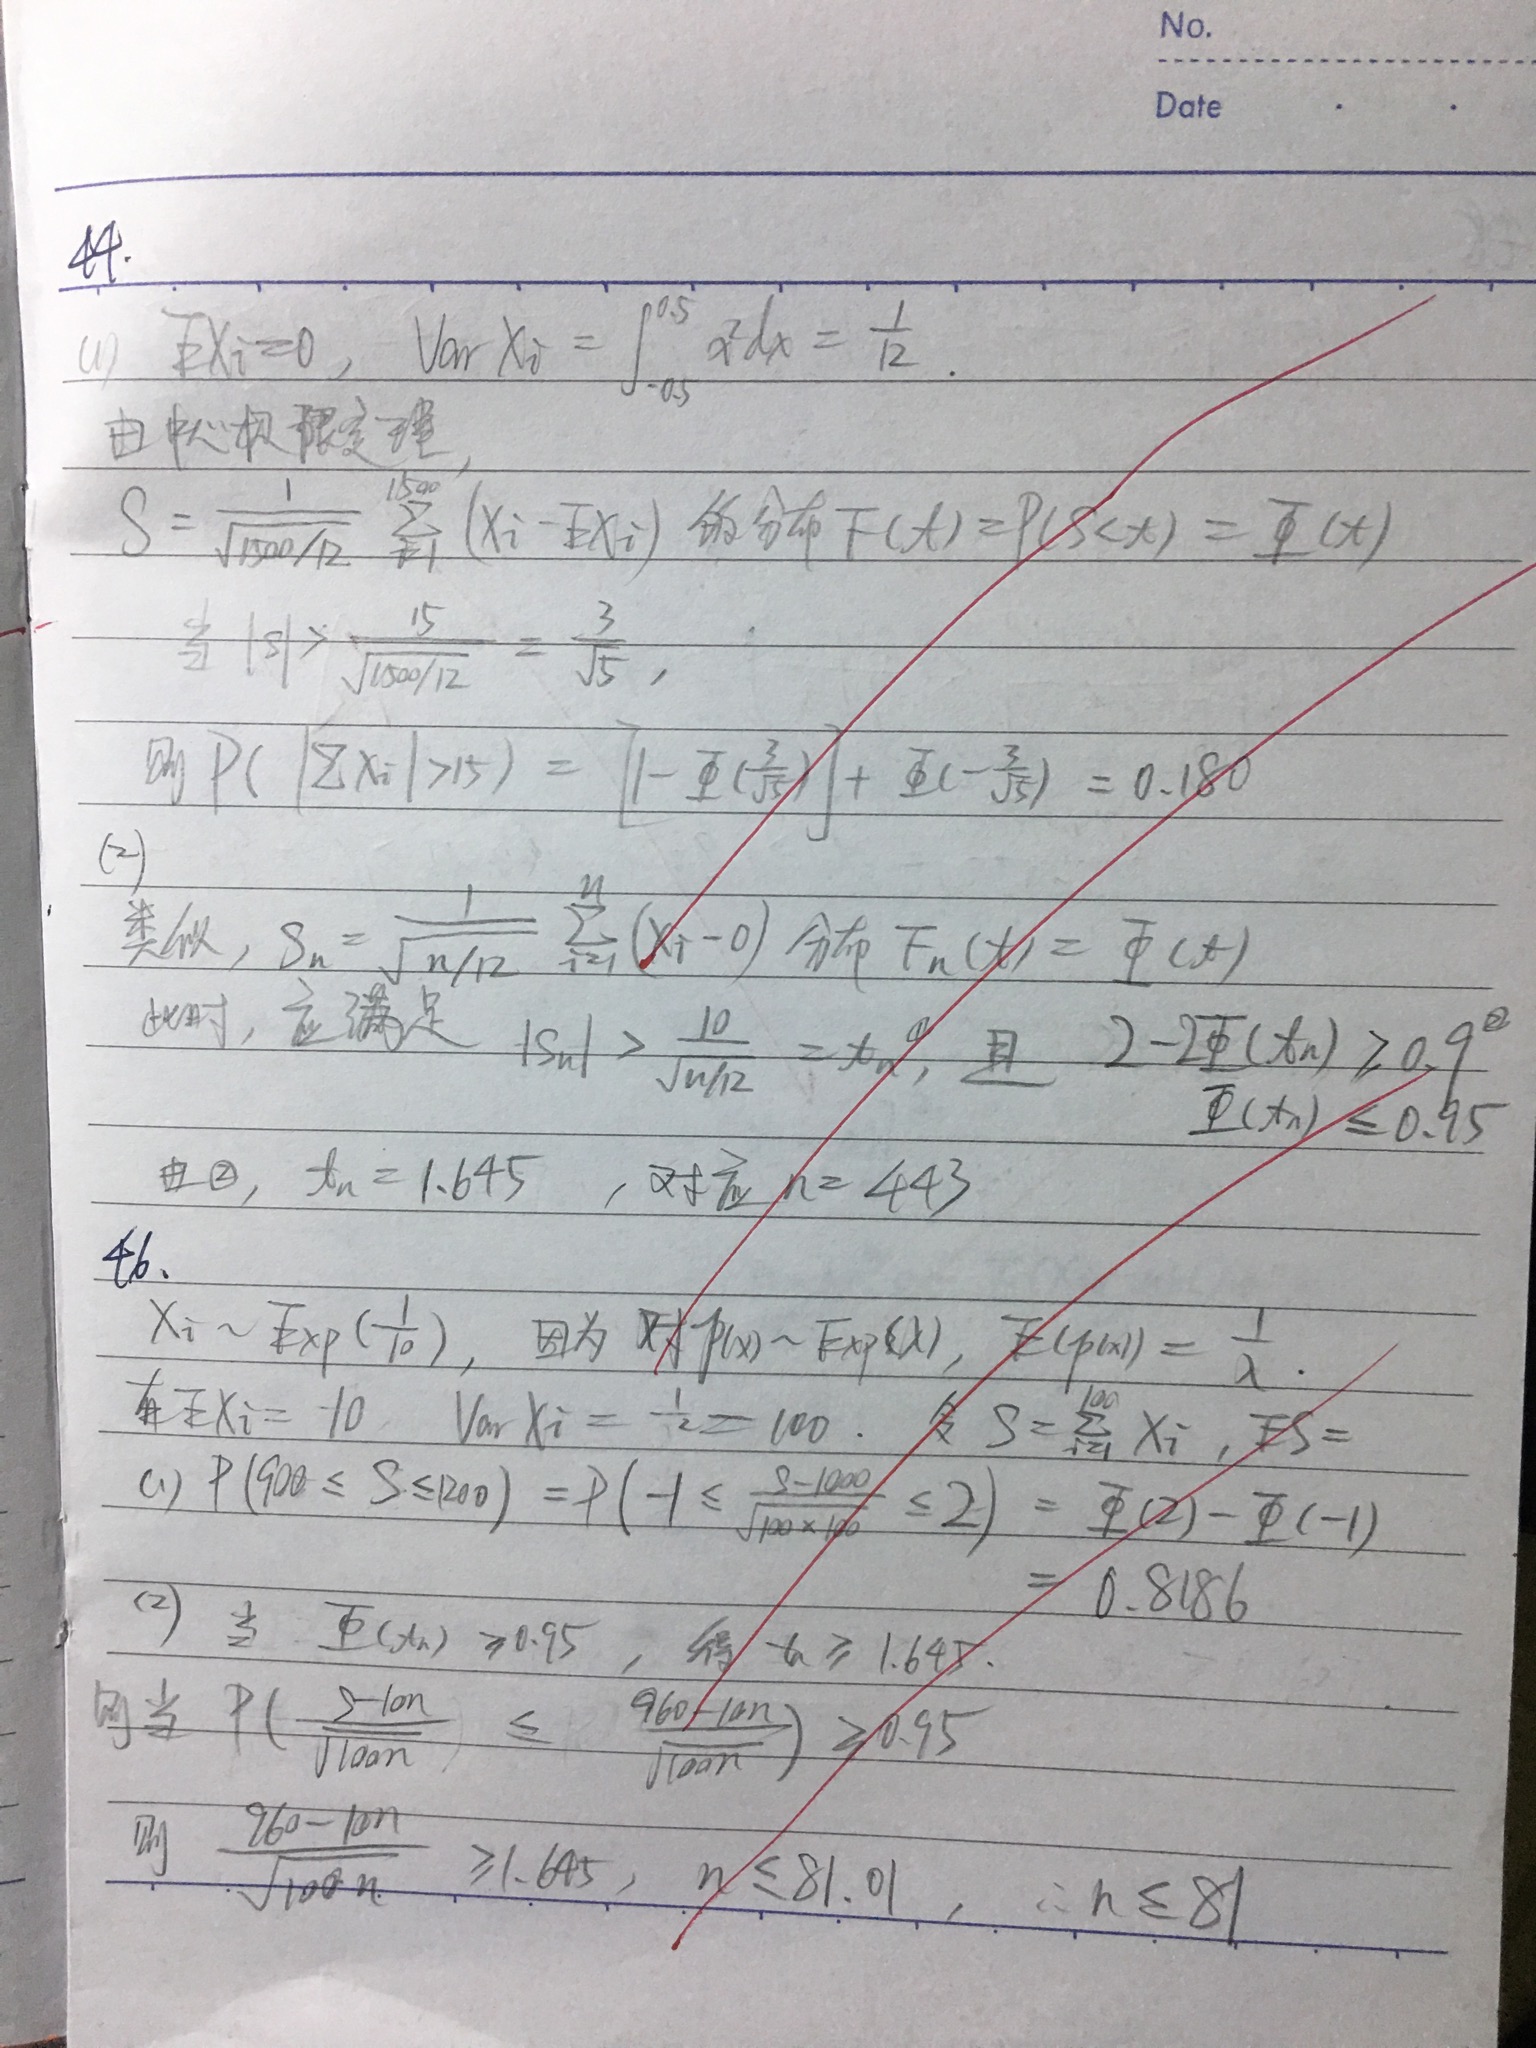 No.
Date
44.
(1) EXi=0, Var Xi = ∫_{-0.5}^{0.5} x²dx = 1/12.
由中心极限定理,
S = 1/√(1500/12) Σ_{i=1}^{1500} (Xi - EXi) 的分布 F(t) = P(S<t) = Φ(t)
当 |S| > 15/√(1500/12) = 3/√5,
则 P( |ΣXi| >15) = [1 - Φ(3/√5)] + Φ(-3/√5) = 0.180
(2)
类似, Sn = 1/√(n/12) Σ_{i=1}^{n} (Xi - 0) 分布 Fn(t) = Φ(t)
此时, 应满足 |Sn| > 10/√(n/12) = tn ①, 且 2-2Φ(tn) ≥ 0.9 ②
Φ(tn) ≤ 0.95
由②, tn = 1.645, 对应 n = 443
46.
Xi ~ Exp(1/10), 因为 对 p(x) ~ Exp(λ), E(p(x)) = 1/λ.
有 EXi = 10 Var Xi = 1/λ² = 100. 令 S = Σ_{i=1}^{100} Xi, ES =
(1) P(900 ≤ S ≤ 1200) = P( -1 ≤ (S-1000)/√(100×100) ≤ 2) = Φ(2) - Φ(-1)
= 0.8186
(2) 当 Φ(tn) ≥ 0.95, 得 tn ≥ 1.645.
则当 P( (S-10n)/√(100n) ≤ (960-10n)/√(100n) ) ≥ 0.95
则 (960-10n)/√(100n) ≥ 1.645, n ≤ 81.01, ∴ n ≤ 81